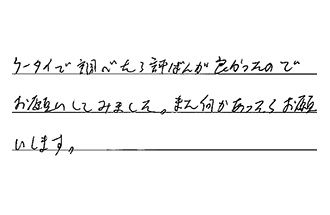 ケータイで調べたら評ばんが良かったので
お願いしてみました。また何かあったらお願
いします。